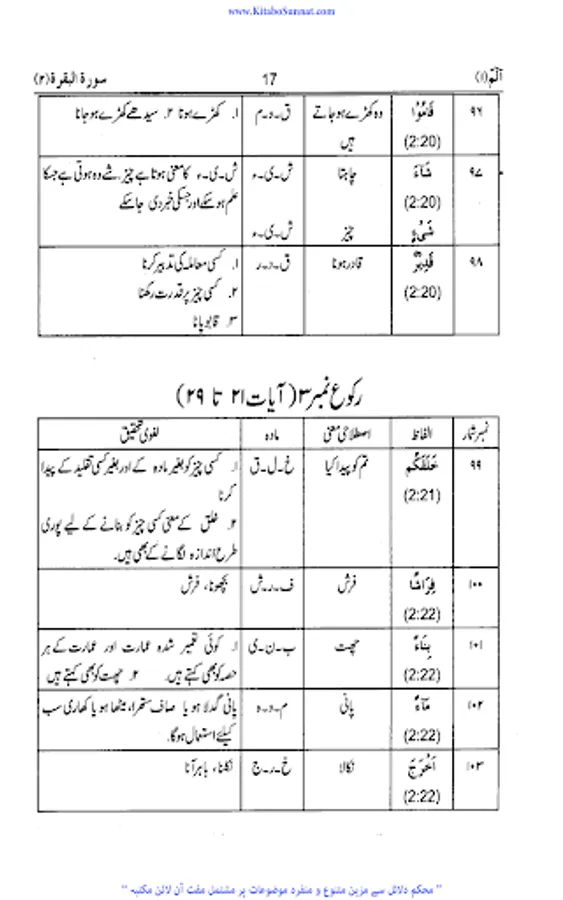 www.KitaboSunnat.com
آلٓمّ (۱) 17 سورة البقرة (۲)
۹۶ قَامُوْا وہ کھڑے ہو جاتے ق۔و۔م ۱. کھڑے ہونا ۲. سیدھے کھڑے ہو جانا
(2:20) ہیں
۹۷ شَآءَ چاہتا ش۔ی۔ء ش۔ی۔ء کا معنی ہوتا ہے چیز۔ شے وہ ہوتی ہے جسکا
(2:20) علم ہو سکے اور جسکی خبر دی جا سکے
شَیْءٍ چیز ش۔ی۔ء
۹۸ قَدِیْرٌ قادر ہونا ق۔د۔ر ۱. کسی معاملہ کی تدبیر کرنا
(2:20) ۲. کسی چیز پر قدرت رکھنا
۳. قابو پانا
رکوع نمبر ۳ (آیات ۲۱ تا ۲۹)
نمبر شمار الفاظ اصطلاحی معنی مادہ لغوی تحقیق
۹۹ خَلَقَكُمْ تم کو پیدا کیا خ۔ل۔ق ۱. کسی چیز کو بغیر مادہ کے اور بغیر کسی تقلید کے پیدا
(2:21) کرنا
۲. خلق کے معنی کسی چیز کو بنانے کے لیے پوری
طرح اندازہ لگانے کے بھی ہیں۔
۱۰۰ فِرَاشًا فرش ف۔ر۔ش بچھونا، فرش
(2:22)
۱۰۱ بِنَآءً چھت ب۔ن۔ی ۱. کوئی تعمیر شدہ عمارت اور عمارت کے ہر
(2:22) حصہ کو بھی کہتے ہیں۔ ۲. چھت کو بھی کہتے ہیں
۱۰۲ مَآءً پانی م۔و۔ہ پانی گدلا ہو یا صاف ستھرا، میٹھا ہو یا کھاری سب
(2:22) کیلئے استعمال ہوگا۔
۱۰۳ اَخْرَجَ نکالا خ۔ر۔ج نکلنا، باہر آنا
(2:22)
" محکم دلائل سے مزین متنوع و منفرد موضوعات پر مشتمل مفت آن لائن مکتبہ "